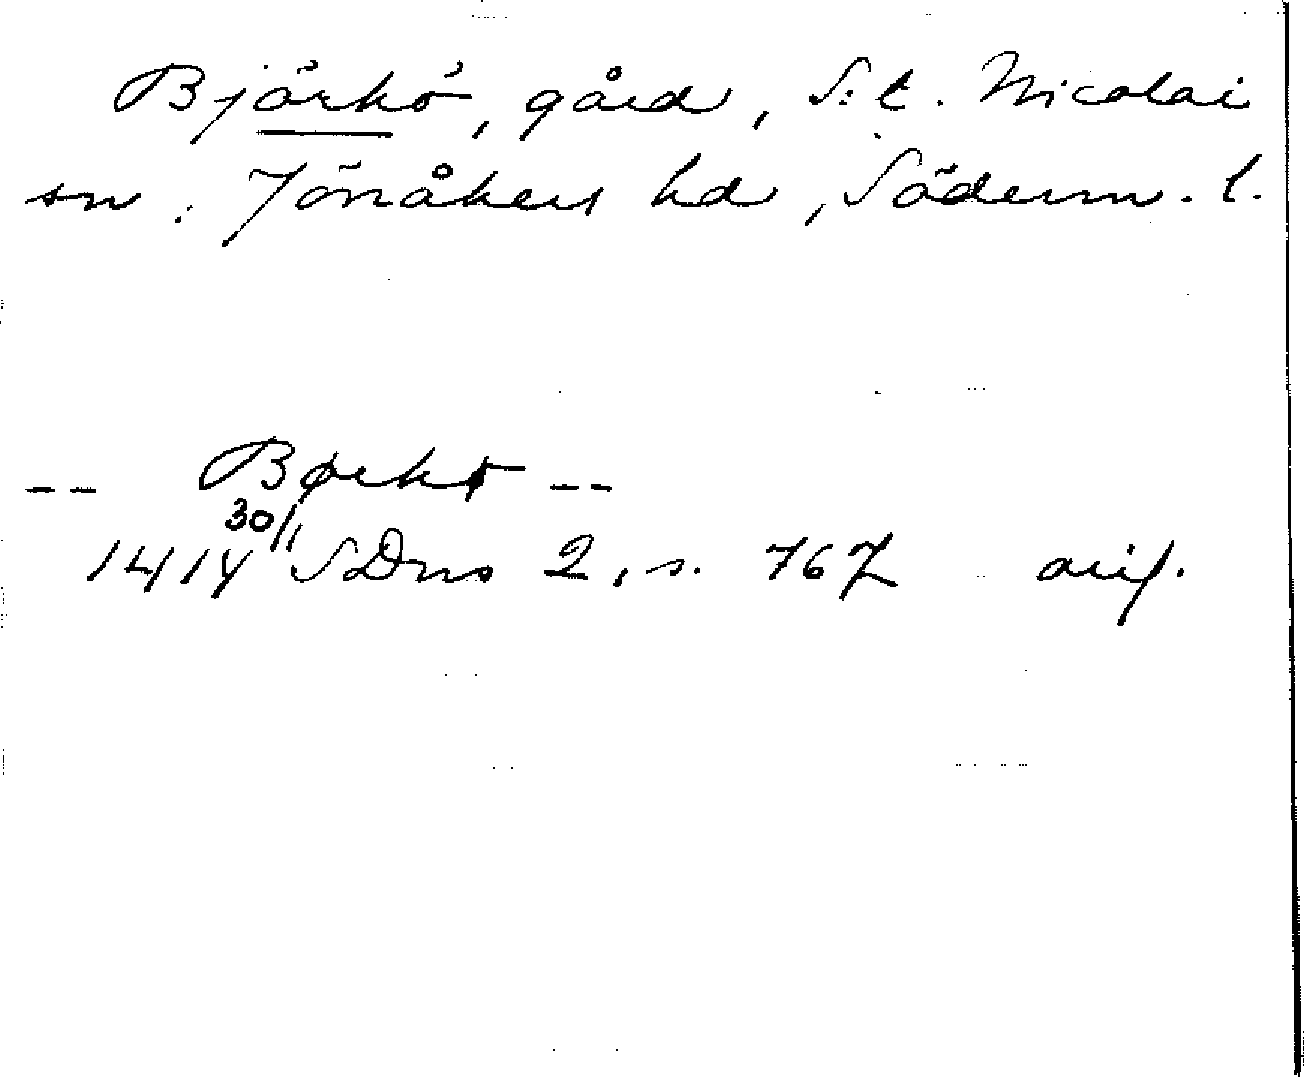 Björkö, gård, S:t. Nicolai
sn. Jönåkers hd, Söderm. l.
-- Børkø --
1414 30/11 SDns 2, s. 767 avs.